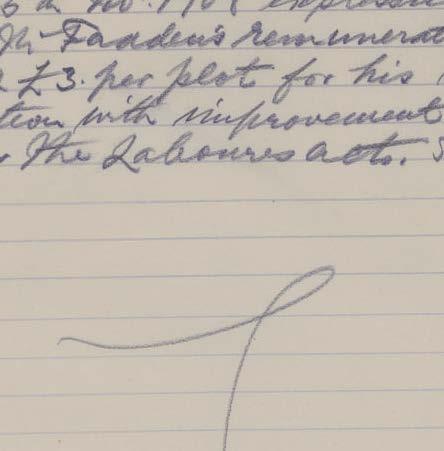 M Fadden's remunerat
£3. per plot for his
tion with improvement
The Laboures acts. S